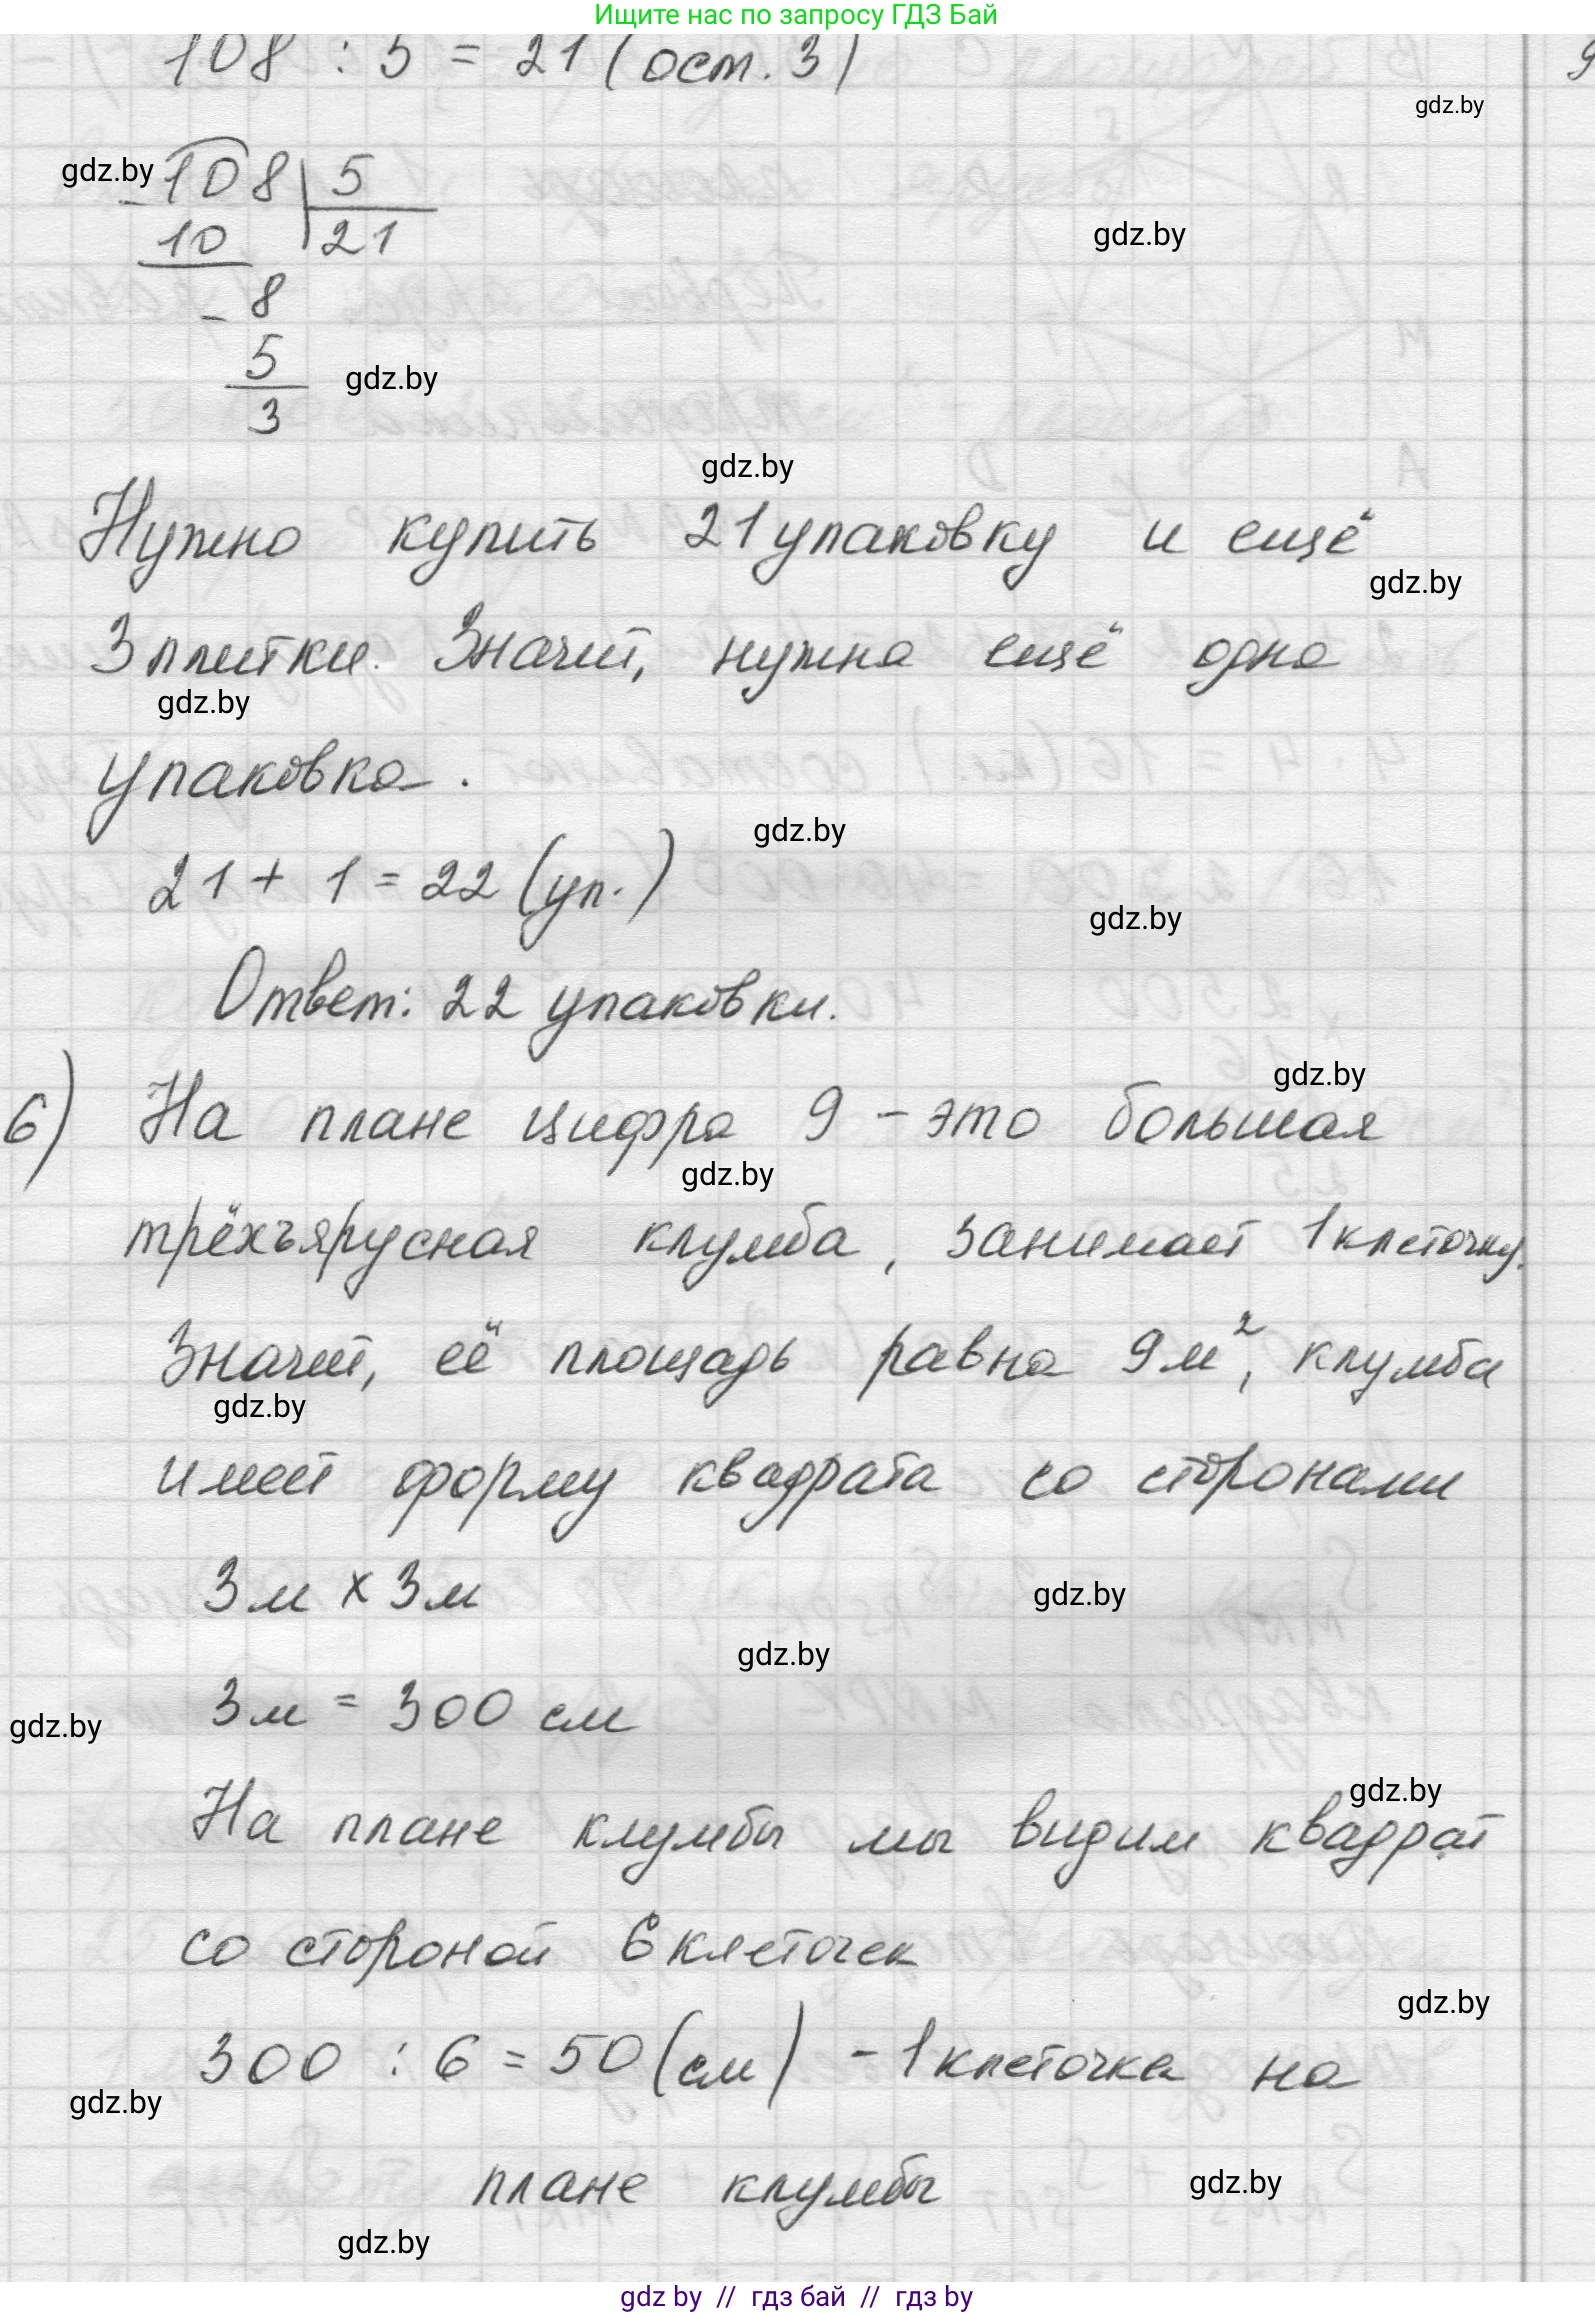 Ищите нас по запросу ГДЗ Бай
108 : 5 = 21 (ост. 3)
gdz.by
gdz.by
108 | 5
10 21
gdz.by
- 8
5
3
gdz.by
gdz.by
Нужно купить 21 упаковку и ещё
gdz.by
3 плитки. Значит, нужна ещё одна
gdz.by
упаковка.
gdz.by
21 + 1 = 22 (уп.)
gdz.by
Ответ: 22 упаковки.
gdz.by
6) На плане цифра 9 – это большая
gdz.by
трёхъярусная клумба, занимает 1 клеточку.
Значит, её площадь равна 9 м², клумба
gdz.by
имеет форму квадрата со сторонами
3 м х 3 м
gdz.by
gdz.by
3 м = 300 см
gdz.by
gdz.by
На плане клумбы мы видим квадрат
со стороной 6 клеточек
gdz.by
300 : 6 = 50 (см) – 1 клеточка на
gdz.by
плане клумбы
gdz.by
gdz.by
gdz by // гдз бай // гдз by